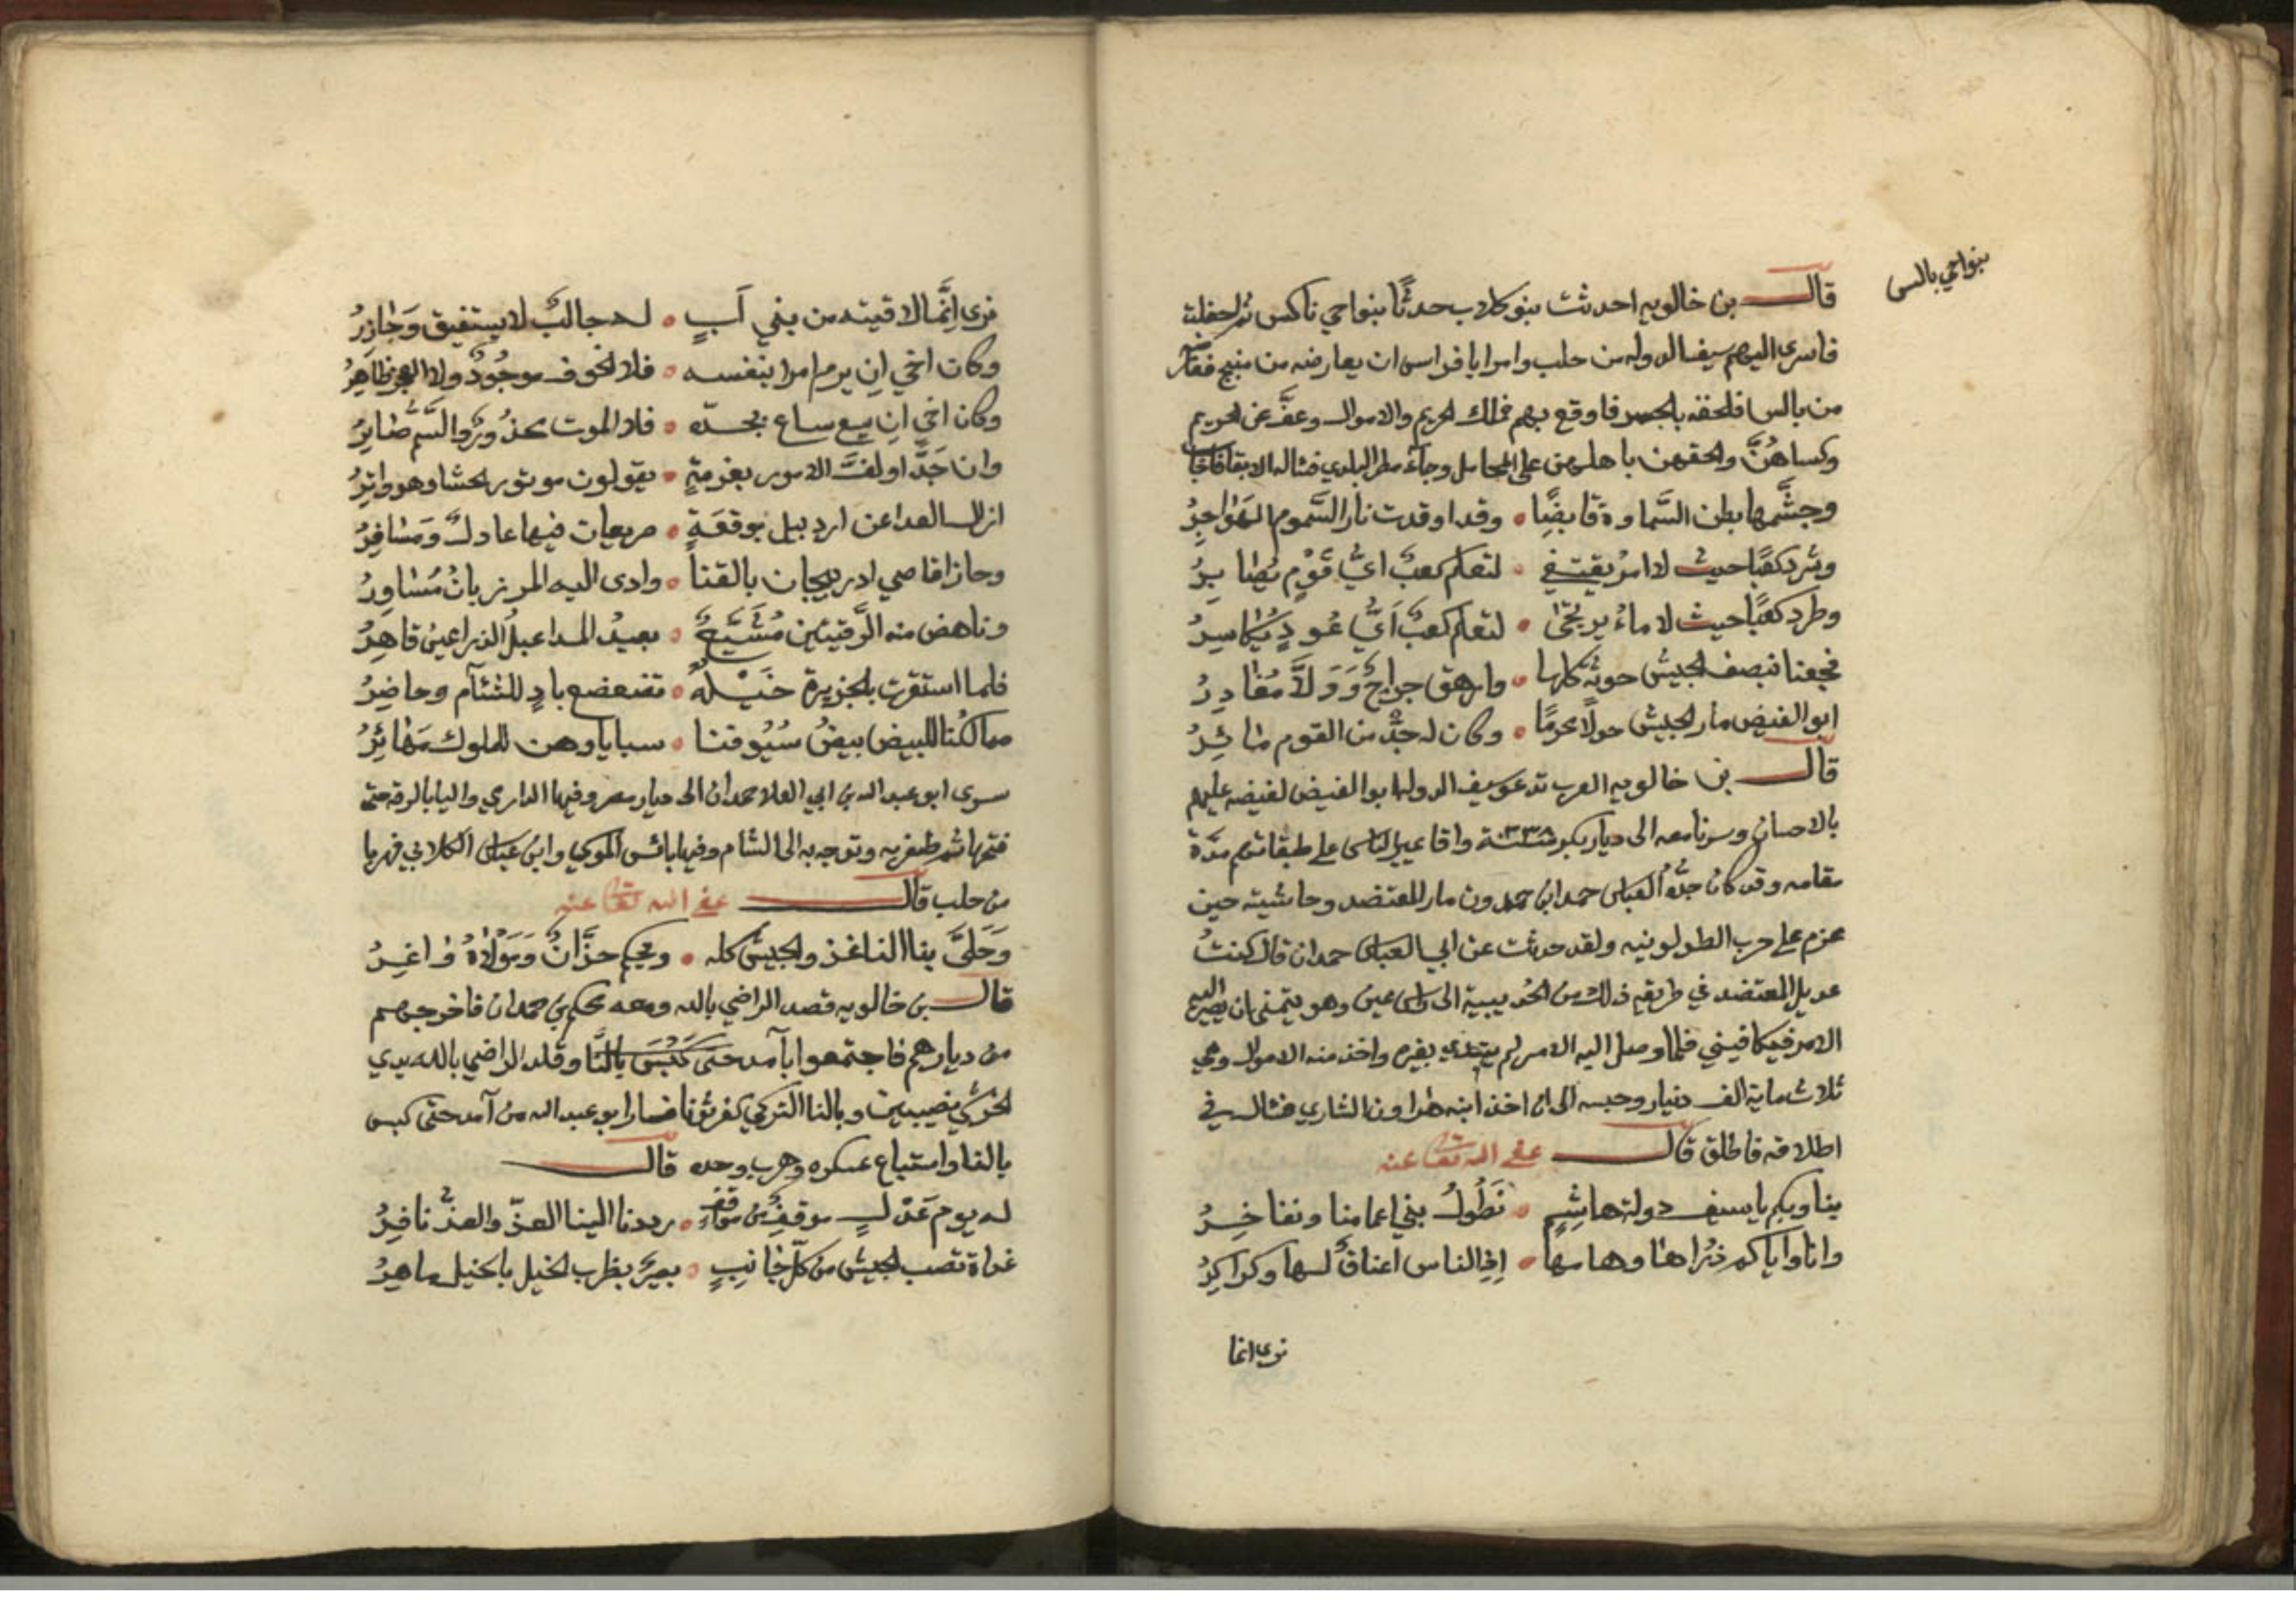 بنواحي بالس
قال بن خالويه احدثت بنو كلاب حدثًا بنواحي ناكس ثم احفلت
فاسرى اليهم سيف الدوله من حلب وامر ابا فراس ان يعارضه من منبج
من بالس فلحقه بالجسر فاوقع بهم فملك الحريم والاموال وعفَّ عن الحريم
وكساهُنَّ والحقهن باهلهن على المحامل وجاءَه مطر البلدي فساله الابقا فاجابه
وجشَّمها بطن السَّماوة قايضًا وقد اوقدت نار السَّموم الهَوَاجِرُ
وشرد كعبًا حيث لا اثر يقتفي لتعلم كعبٌ ايَّ قَوْمٍ تُطَايِرُ
وطرد كعبًا حيث لا ماءُ يرتجى لتعلم كعبٌ اَيَّ عُودٍ تُكَاسِرُ
فجعنا بنصف الجيش حوثة كلها وارهق جراحٌ وَوَلَّا مُغَادِرُ
ابو الفيض مار الجيش حولًا محرمًا وكان له جدٌّ من القوم مائِرُ
قال بن خالويه العرب تدعو سيف الدوله ابو الفيض لفيضه عليهم
بالاحسان وسرنا معه الى ديار بكر سنة ٣٣٨ واقام يمير الناس على طبقاتهم مدّة
مقامه وقد كان جدُّه العباس حمدان بن حمدون مار المعتضد وحاشيته حين
عزم على حرب الطولونيه ولقد حدثت عن ابي العباس حمدان قال كنتُ
عديل المعتضد في طريقه ذلك من الحُديبية الى راس عين وهو يتمنى ان يصير اليه
الامر فيكافيني فلما وصل اليه الامر لم يبتدي بغيره واخذ منه الاموال وهي
ثلاث ماية الف دنيار وحبسه الى ان اخذ ابنه هراون الشاري فسال في
اطلاقه فاطلق قال عفى الله تعا عنه
بنا وبكم يا سيف دولة هاشِمٍ تَطُولُ بني اعمامنا ونفاخِرُ
وانا واياكم ذُرَاها وهامها اِذِ الناس اعناقٌ لها وكراكرُ
نرى انما
نرى اِنَّما لاقيته من بني اَبٍ له جالبٌ لا يستفيق وَجَازِرُ
وكان اخي ان يرم امرا بنفسه فلا الخوف موجُودٌ ولا العجز ظاهِرُ
وكان اخي ان يسع ساع بجده فلا الموت محذُورٌ ولا السَّم ضايرُ
وان جَدَّ او لفَّ الامور بعزمةٍ يقولون موتور الحشا وهو واتِرُ
ازال العدا عن اردبيل بوقعَةٍ صريعان فيها عادلٌ وَمسَافِرُ
وحاز اقاصي ادربيجان بالقنا وادى اليه المرزبانُ مُسَاوِرُ
وناهض منه الرَّقتين مُشَيَّعٌ بعيدُ المدا عبلُ الذراعين قاهِرُ
فلما استقرت بالجزيرة خَيْلُهُ تضعضع بادٍ للشئآم وحاضِرُ
ممالكُنا للبيض بيضُ سُيُوفنا سبايا وهن للملوك مَهَائِرُ
سرى ابو عبد الله بن ابي العلا حمدان الى ديار مصر وفيها الداري واليا بالرقة حتى
فتحها ثم ظفر به وتوجه به الى الشام وفيها بائس المومي وابن عباس الكلابي فهربا
من حلب قال عفى الله تعا عنه
وَحَلَّ بنا الناغز والجيش كله وحكم حرَّانٌ وَمَوْلَاهُ دَاغِرُ
قال بن خالويه قصد الراضي بالله ومعه بحكم بني حمدان فاخرجهم
من ديارهم فاجتمعوا بآمد حتى كَبَسَ يالنَّا وقلد الراضي بالله بدي
الخرشي نصيبين ويالنا التركي كفرتوثا فسار ابو عبد الله من آمد حتى كبس
يالنا واستباح عسكره وهرب وحده قال
له يوم عَدْلٍ موقفٌ من مَوَاقِفٍ رددنا الينا العزّ والعزُّ نافِرُ
غداة تصب الجيش من كلّ جَانِبٍ بصيرٌ بضرب الخيل بالخيل ماهِرُ